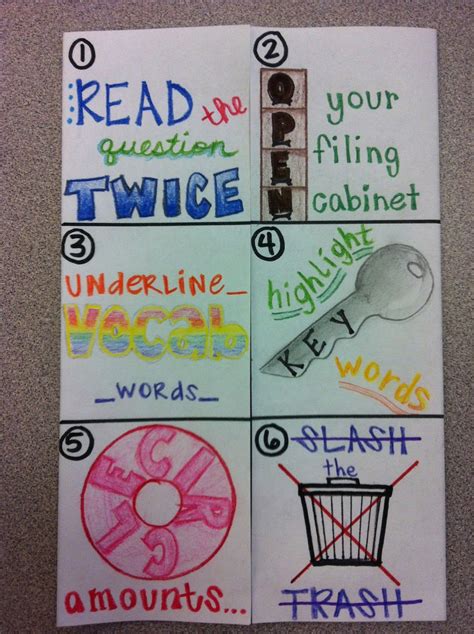 1
READ the
question
TWICE
2
OPEN your
filing
cabinet
3
UNDERLINE_
VOCAB
_WORDS_
4
highlight
KEY
words
5
CIRCLE
amounts...
6
SLASH
the
TRASH